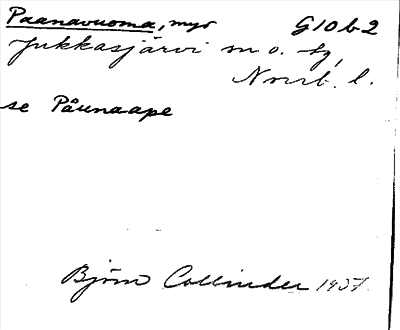 Paanavuoma, myr G10b2
Jukkasjärvi sn o. tg,
Norrb. l.
se Påunaape
Björn Collinder